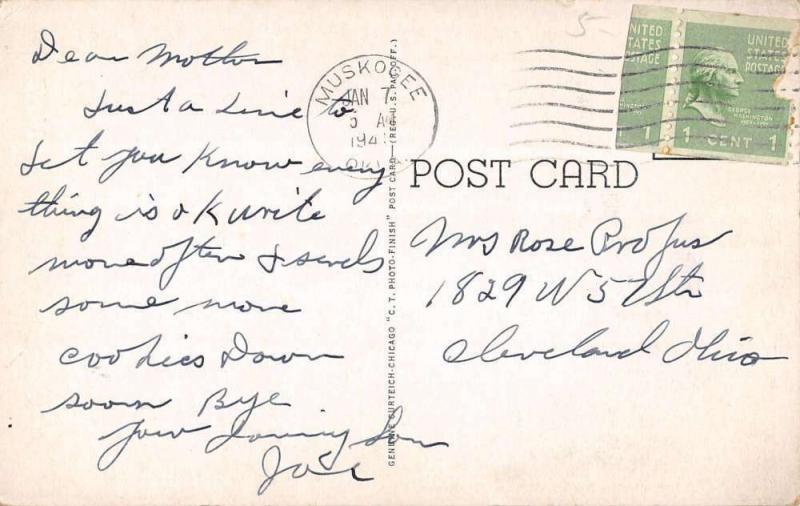 Dear Mother
Just a Line to
Let you Know every
thing is ok write
more often & sends
some more
cookies Down
soon Bye
your Loving Son
Joe
GENUINE CURTEICH-CHICAGO "C. T. PHOTO-FINISH" POST CARD—(REG. U. S. PAT. OFF.)
5-
MUSKOGEE
JAN 7
5 A
194
OKLA
UNITED
STATES
POSTAGE
1
UNITED
STATES
POSTAGE
GEORGE
WASHINGTON
1 CENT 1
POST CARD
Mrs Rose Profus
1829 W 57 Str
Cleveland Ohio